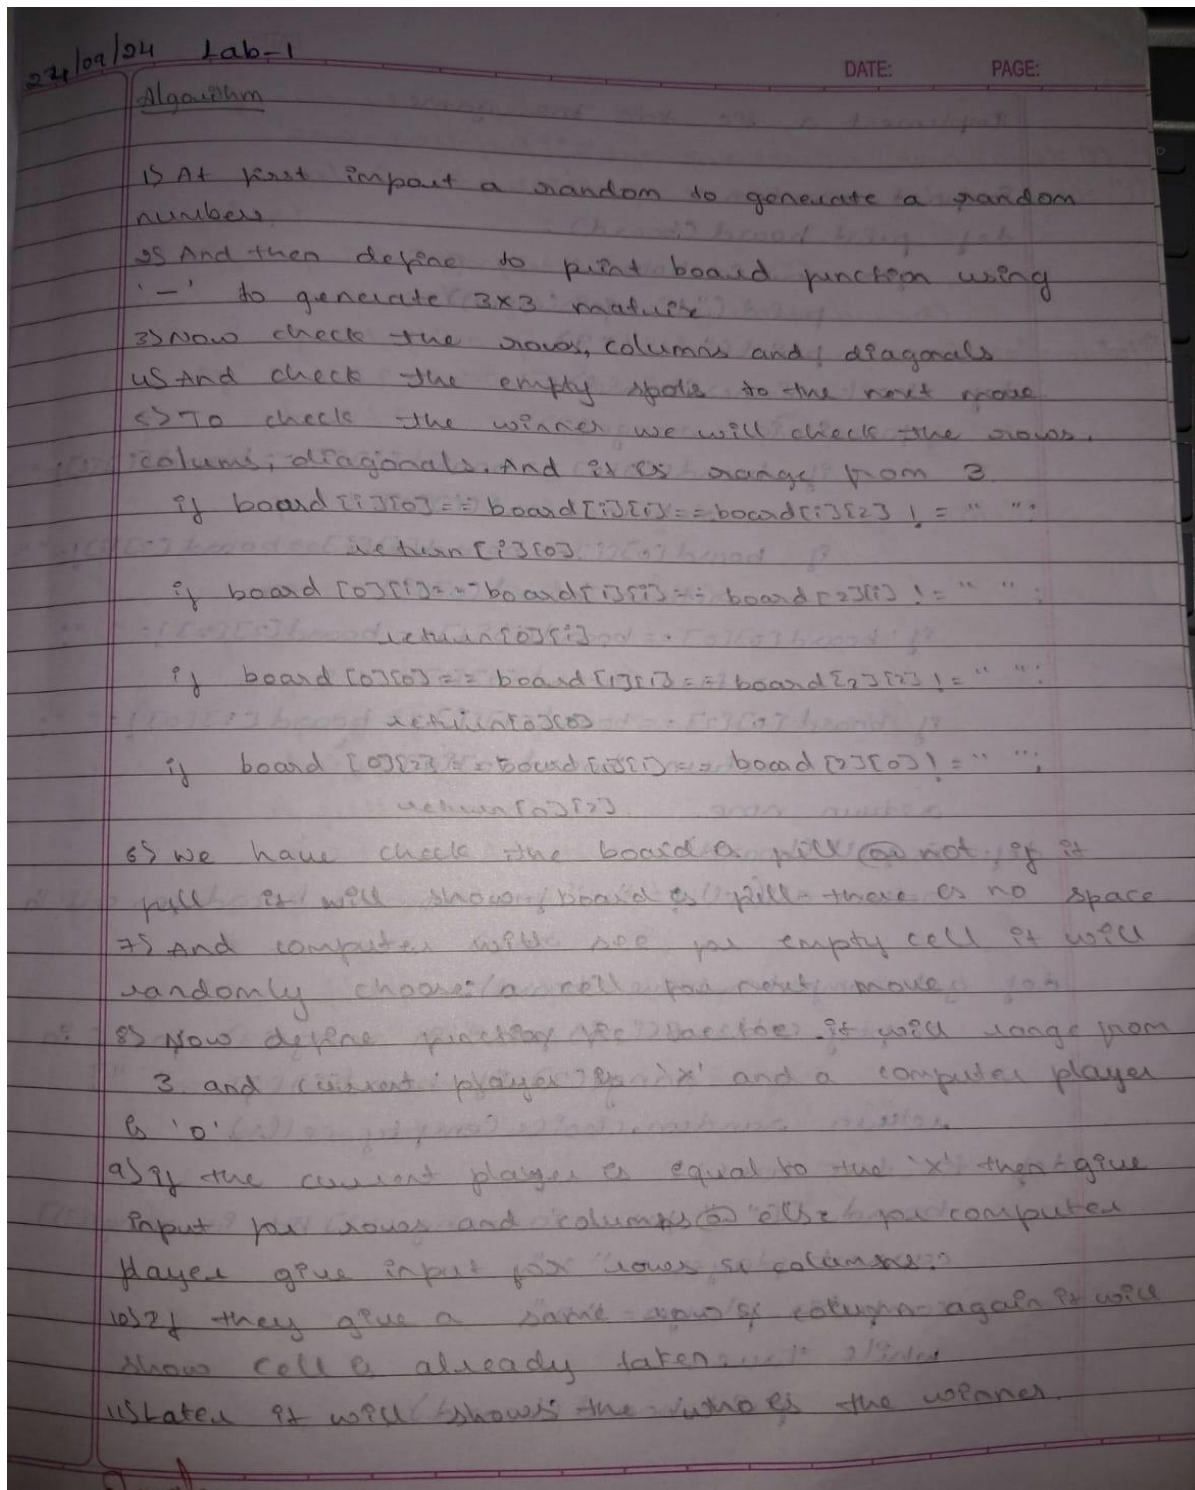 24/09/24 Lab-1
DATE: PAGE:
Algorithm
1) At first import a random to generate a random
numbers
2) And then define to print board function using
'-' to generate 3x3 matrix
3) Now check the rows, columns and diagonals
4) And check the empty spots to the next move
5) To check the winner we will check the rows,
colums, diagonals. And it is range from 3
if board[i][0]==board[i][i]==board[i][2] != " ":
return [i][0]
if board [0][i]==board[i][i]==board[2][i] != " ":
return[0][i]
if board [0][0]==board[1][1]==board[2][2] != " ":
return[0][0]
if board [0][2]==board[1][1]==board[2][0] != " ":
return[0][2]
6) We have check the board is full or not, if it
full it will show board is full there is no space
7) And computer will see for empty cell it will
randomly choose a cell for next move
8) Now define function tic tac toe. it will range from
3 and current player is 'x' and a computer player
is 'o'
9) If the current player is equal to the 'x' then give
input for rows and columns or else for computer
player give input for rows & columns.
10) If they give a same row & column again it will
show cell is already taken
11) Later it will shows the who is the winner.